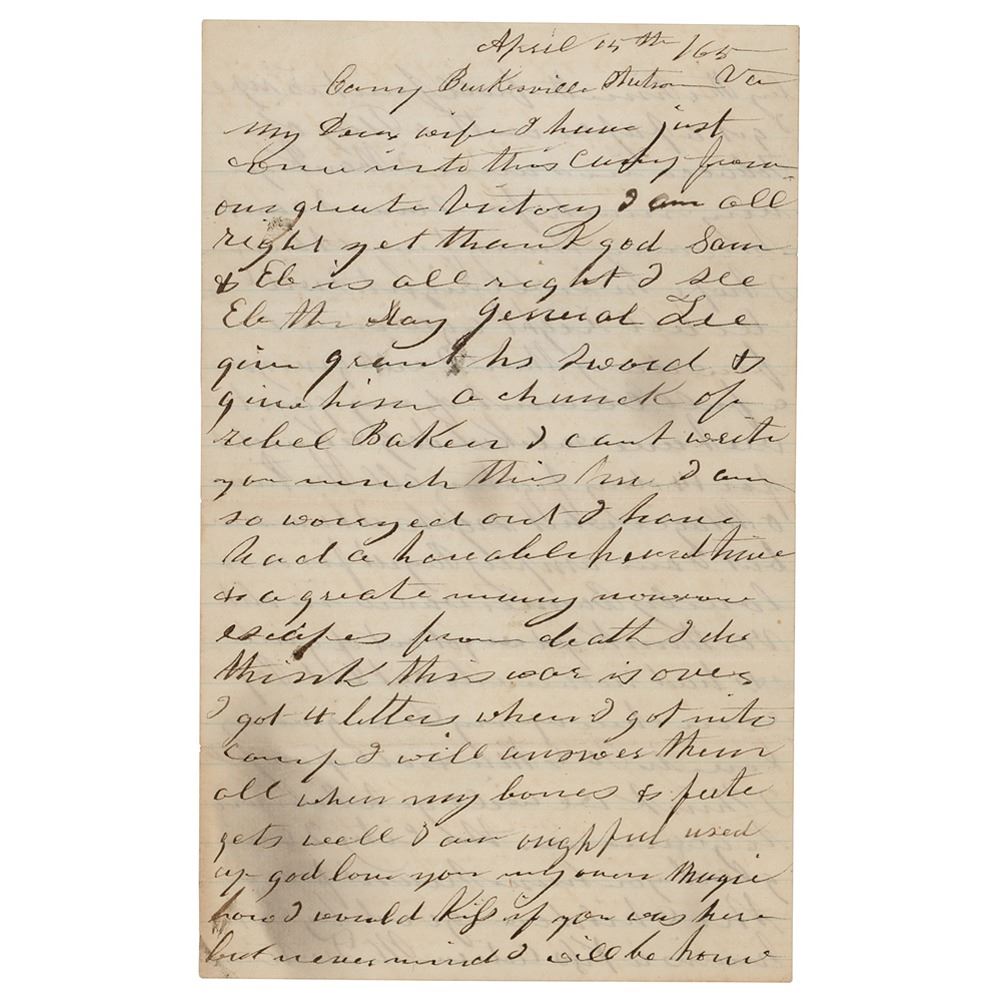 April 15th /65
Camp Burkesville Station Va
My Dear wife I have just
come into this Camp from
our greate Victory I am all
right yet thank god Sam
& Eb is all right I see
Eb the day General Lee
give grant his sword &
give him a chunck of
rebel Baken I cant write
you much this time I am
so worryed out I have
had a horable hard time
& a greate many narrow
escapes from death I do
think this war is over
I got 4 letters when I got into
camp I will answer them
all when my bones & feete
gets well I am used
up god love you my own Magie
how I would Kiss if you was here
but never mind I will be home